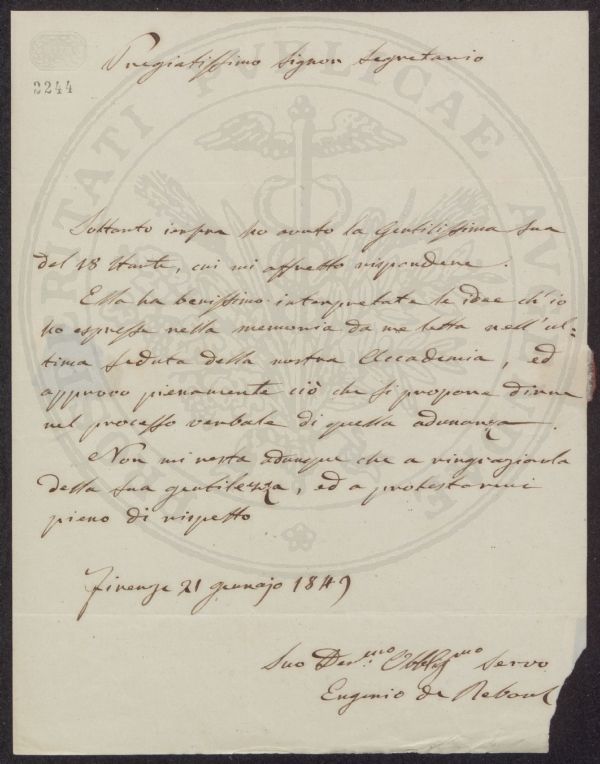 Pregiatissimo Signor Segretario
2244
Soltanto iersera ho avuto la Gentilissima sua
del 18 stante, cui mi affretto rispondere.
Ella ha benissimo interpretate le idee ch'io
ho espresse nella memoria da me letta nell'ul=
tima seduta della nostra Accademia, ed
approvo pienamente ciò che si propone dirne
nel processo verbale di questa adunanza.
Non mi resta adunque che a ringraziarla
della sua gentilezza, ed a protestarmi
pieno di rispetto
Firenze 21 gennajo 1849
Suo Dev.mo Obblig.mo servo
Eugenio de Reboul
PROSPERITATI PVBLICAE AVGENDAE